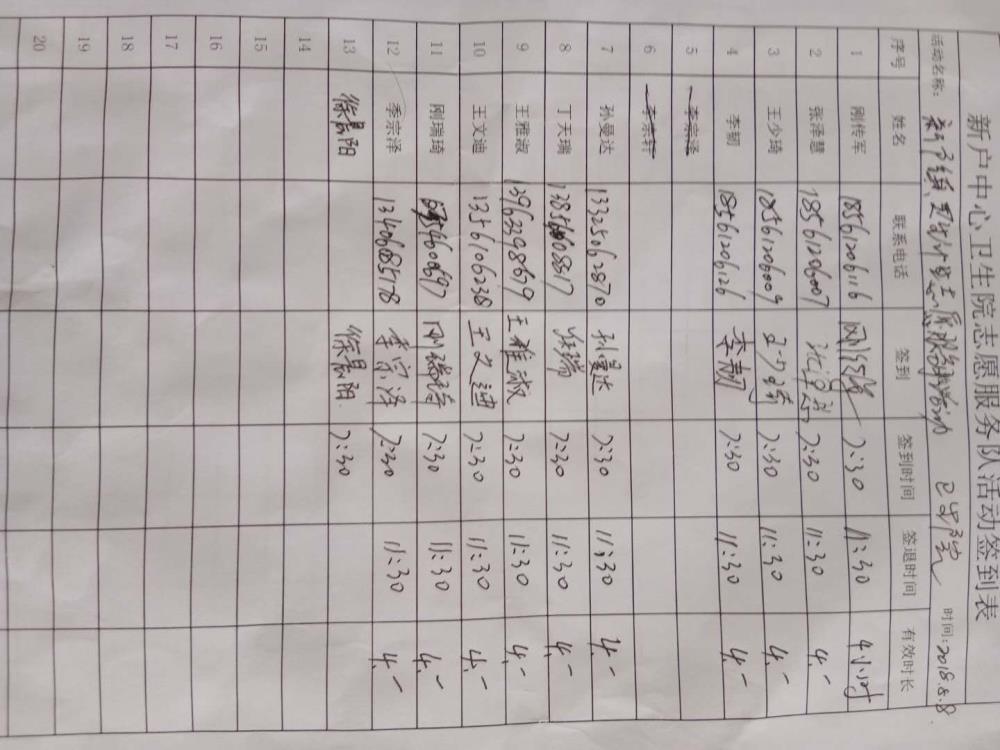 新户中心卫生院志愿服务队活动签到表
活动名称: 时间: 2018.8.8
序号 姓名 联系电话 签到 签到时间 签退时间 有效时长
1 刚传军 18561206116 7:30 11:30 4小时
2 张泽慧 18561206007 7:30 11:30 4.-
3 王少琦 18561206009 王少琦 7:30 11:30 4.-
4 李韧 18561206126 李韧 7:30 11:30 4.-
5 李宗泽
6 李宗轩
7 孙曼达 13325062870 孙曼达 7:30 11:30 4.-
8 丁天瑞 7:30 11:30 4.-
9 王雅淑 13962398679 王雅淑 7:30 11:30 4.-
10 王文迪 13561106238 王文迪 7:30 11:30 4.-
11 刚瑞琦 刚瑞琦 7:30 11:30 4.-
12 季宗泽 13406685178 季宗泽 7:30 11:30 4.-
13 徐晨阳 徐晨阳 7:30
14
15
16
17
18
19
20